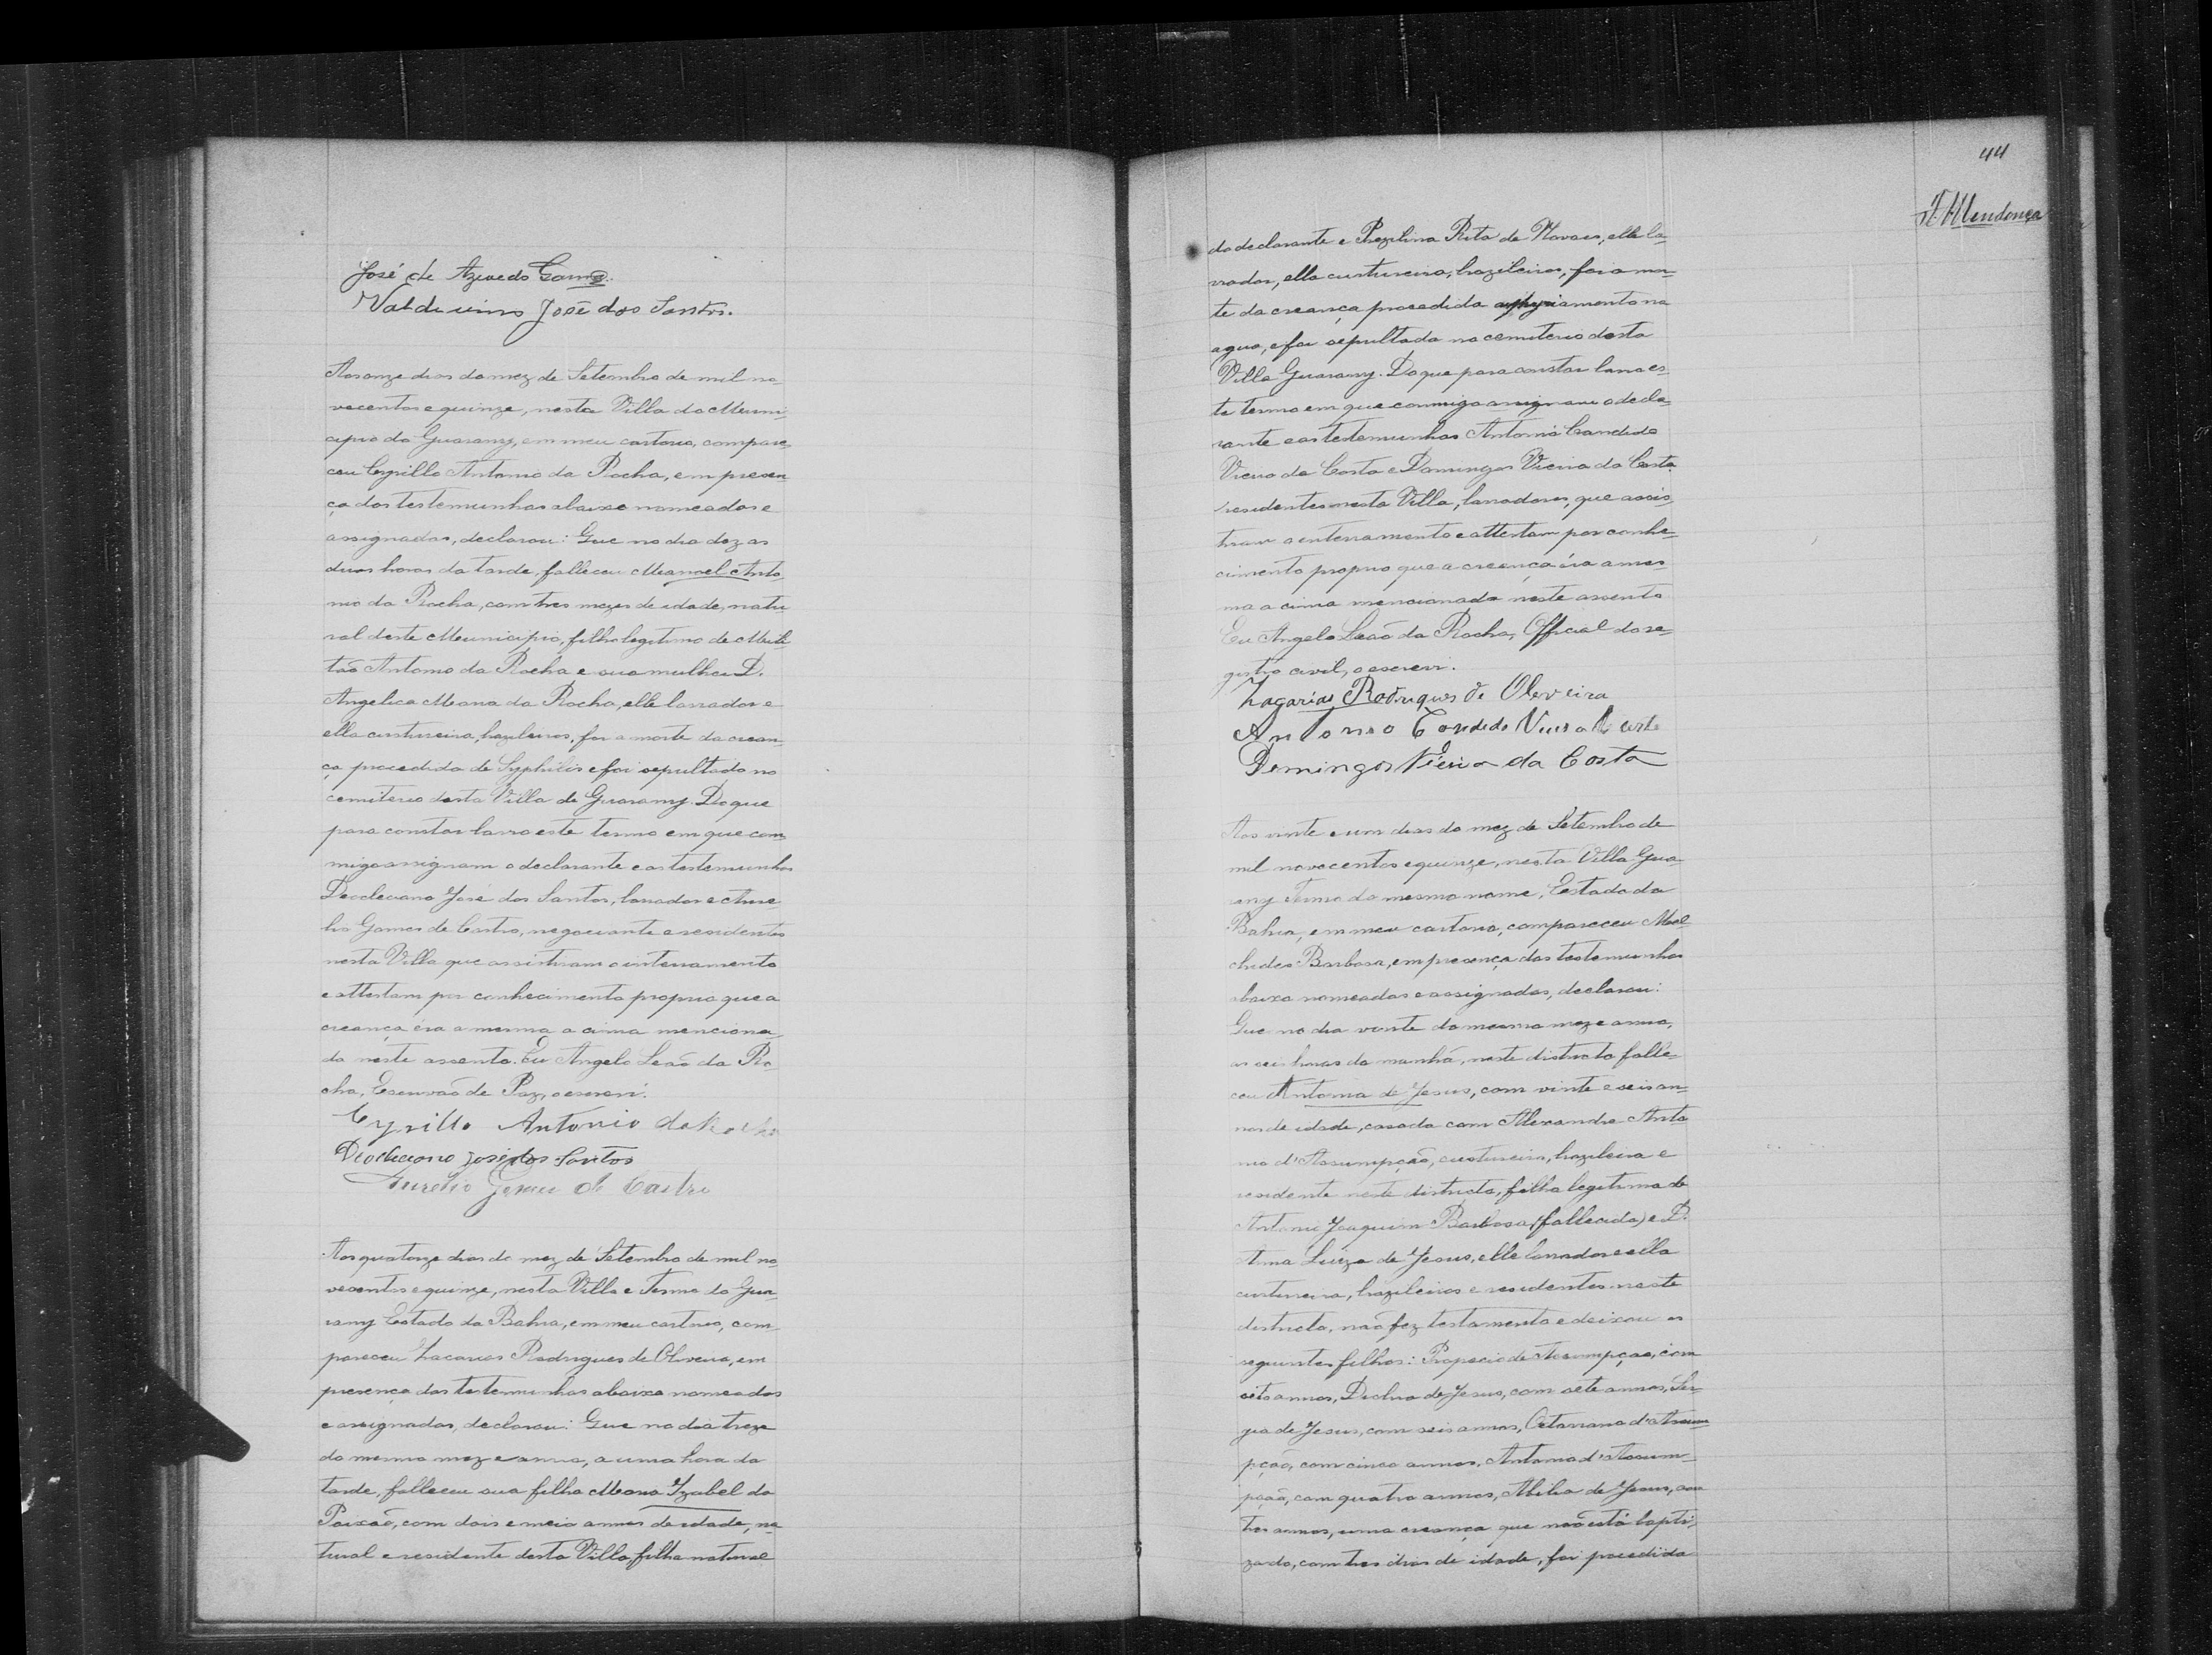 José de Azevedo Gama.
Valduino José dos Santos.
Aos onze dias do mez de Setembro de mil no-
vecentos e quinze, nesta Villa do Muni-
cipio do Guarany, em meu cartorio, compare-
ceu Cyrillo Antonio da Rocha, em presen-
ça das testemunhas abaixo nomeadas e
assignadas, declarou: Que no dia dez as
duas horas da tarde, falleceu Manoel Anto-
nio da Rocha, com tres mezes de idade, natu-
ral deste Municipio, filho legitimo de
Antonio da Rocha e sua mulher D.
Angelica Maria da Rocha, elle lavrador e
ella custureira, brazileiros, foi a morte da crean-
ça procedida de Syphilis e foi sepultado no
cemiterio desta Villa de Guarany. Do que
para constar lavro este termo em que com-
migo assignam o declarante e as testemunhas
Deocleciano José dos Santos, lavrador e Aure-
lio Gomes de Castro, negociante e residentes
nesta Villa que assistiram o interramento
e attestam por conhecimento proprio que a
creança éra a mesma a cima menciona-
da neste assento. Eu Angelo Leão da Ro-
cha, Escrivão de Paz, o escrevi.
Cyrillo Antonio da Rocha
Deocleciano José dos Santos
Aurelio Gomes de Castro
Aos quatorze dias do mez de Setembro de mil no-
vecentos e quinze, nesta Villa e Termo do Gua-
rany Estado da Bahia, em meu cartorio, com-
pareceu Zacarias Rodrigues de Oliveira, em
presença das testemunhas abaixo nomeadas
e assignadas, declarou: Que no dia treze
do mesmo mez e anno, a uma hora da
tarde, falleceu sua filha Maria Izabel da
Paixão, com dois e meio annos de idade, na-
tural e residente desta Villa, filha natural
44
Mendonça
do declarante e Rita de Novaes, elle la-
vrador, ella custureira, brazileiros, foi a mor-
te da creança procedida na
agua, e foi sepultada no cemiterio desta
Villa Guarany. Do que para constar lavro es-
te termo em que commigo assignam o decla-
rante e as testemunhas Antonio Candido
Vieira da Costa e Domingos Vieira da Costa
residentes nesta Villa, lavradores, que assis-
tiram o enterramento e attestam por conhe-
cimento proprio que a creança éra a mes-
ma a cima mencionada neste assento
Eu Angelo Leão da Rocha, Official do re-
gistro civil, o escrevi.
Zagarias Rodrigues de Oliveira
Antonio Candido Vieira da Costa
Domingos Vieira da Costa
Aos vinte e um dias do mez de Setembro de
mil novecentos e quinze, nesta Villa Gua-
rany Termo do mesmo nome, Estado da
Bahia, em meu cartorio, compareceu Mel-
chides Barbosa, em presença das testemunhas
abaixo nomeadas e assignadas, declarou:
Que no dia vinte do mesmo mez e anno,
as seis horas da manhã, neste districto falle-
ceu Antonia de Jesus, com vinte e seis an-
nos de idade, casada com Alexandre Anto-
nio d'Assumpção, custureira, brazileira e
residente neste districto, filha legitima de
Antonio Joaquim Barbosa (fallecido) e D.
Anna Luiza de Jesus, elle lavrador e ella
custureira, brazileiros e residentes neste
districto, não fez testamento e deixou os
seguintes filhos: de Assumpção, com
oito annos, de Jesus, com sete annos, Ser-
gia de Jesus, com seis annos, Octaviano d'Assum-
pção, com cinco annos, Antonio d'Assum-
pção, com quatro annos, de Jesus, com
tres annos, uma creança que não está bapti-
zada, com tres dias de idade, foi procedida